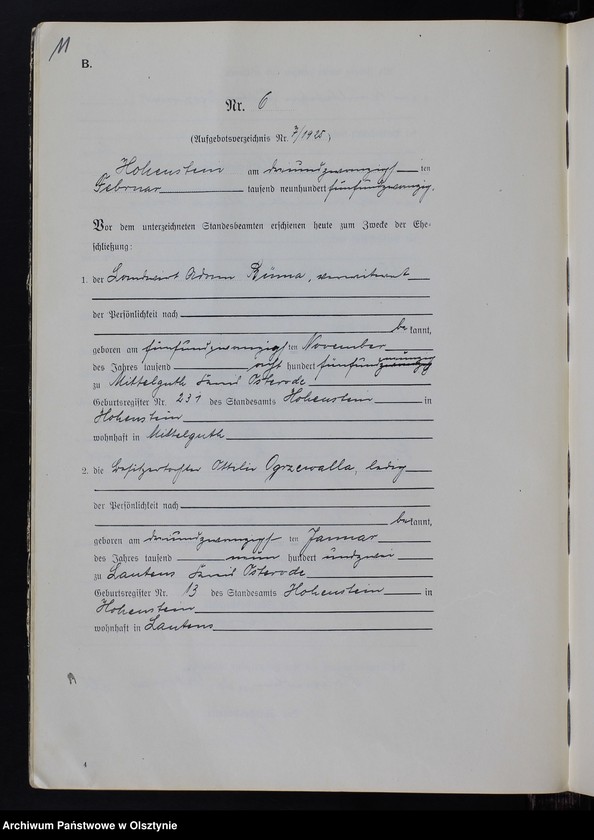 11
B.
Nr. 6
(Aufgebotsverzeichnis Nr. 7/1925)
Hohenstein am dreiundzwanzigsten
Februar tausend neunhundert fünfundzwanzig.
Vor dem unterzeichneten Standesbeamten erschienen heute zum Zwecke der Ehe-
schließung:
1. der Landwirt Adam, verwitwet
der Persönlichkeit nach
bekannt,
geboren am fünfundzwanzigsten November
des Jahres tausend acht hundert fünfund
neunzig
zu Mittelguth Kreis Osterode
Geburtsregister Nr. 231 des Standesamts Hohenstein in
Hohenstein
wohnhaft in Mittelguth
2. die Besitzertochter Ottilie Ogrzewalla, ledig
der Persönlichkeit nach
bekannt,
geboren am dreiundzwanzigsten Januar
des Jahres tausend neun hundert undzwei
zu Lautens Kreis Osterode
Geburtsregister Nr. 13 des Standesamts Hohenstein in
Hohenstein
wohnhaft in Lautens
4
Archiwum Państwowe w Olsztynie